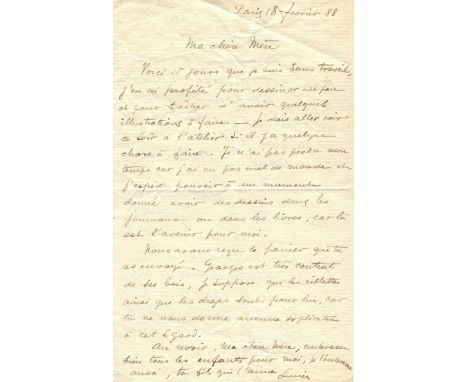 Paris 18 fevrier 88
Ma chère Mère
Voici 15 jours que je suis sans travail,
j'en ai profité pour dessiner un peu
et pour tacher d'avoir quelques
illustrations à faire — je dois aller voir
ce soir à l'atelier s'il y a quelque
chose à faire. Je n'ai pas perdu mon
temps car j'ai vu pas mal de monde et
j'espère pouvoir à un moment
donné avoir des dessins dans les
journaux ou dans les livres, car là
est l'avenir pour moi.
Nous avons reçu le panier que tu
as envoyé. Georges est très content
de ses bois, je suppose que les rillettes
ainsi que les draps sont pour lui, car
tu ne nous donne aucune explication
à cet égard.
Au revoir, Ma chère Mère, embrasse
bien tous les enfants pour moi, je t'embrasse
aussi, ton fils qui t'aime Lucien